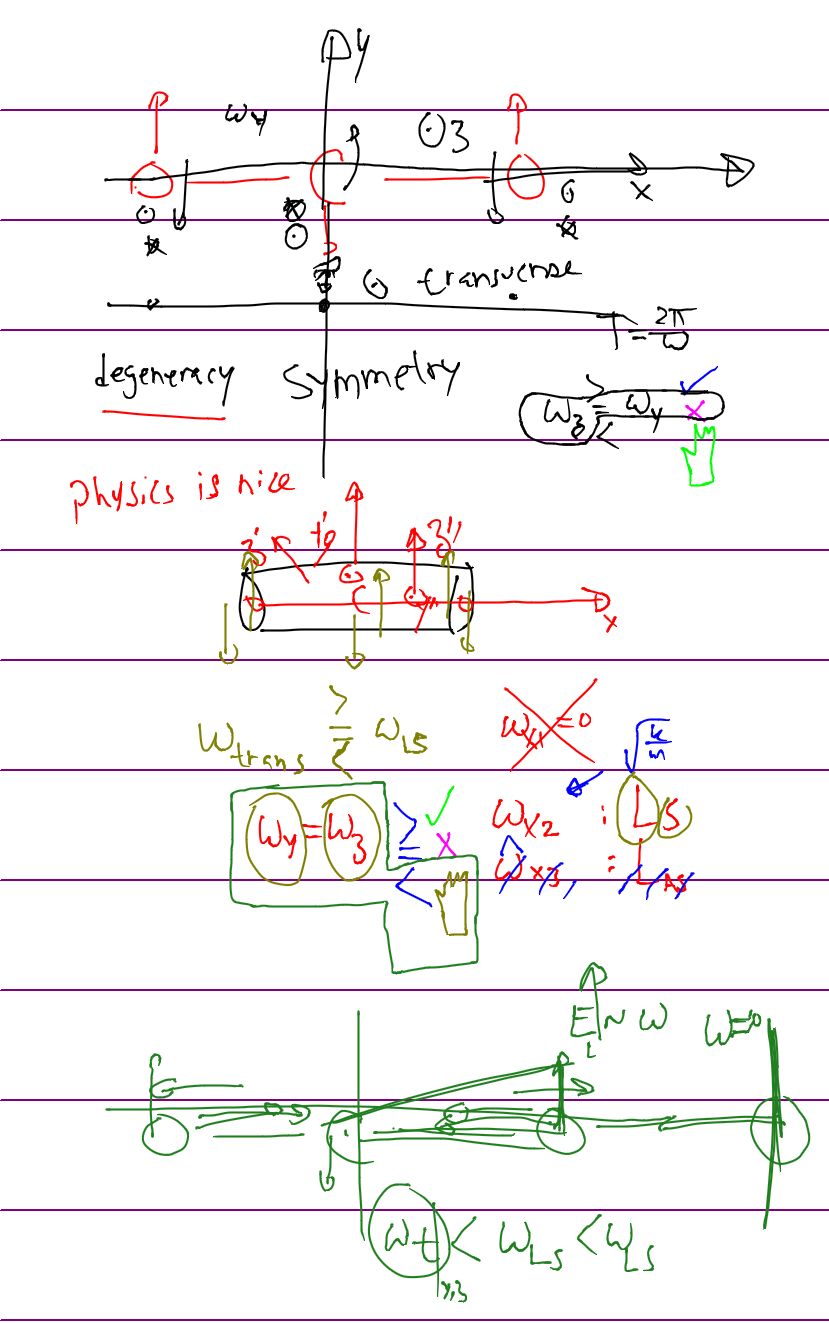 y
ω_y
⊙ z
x
⊙ transverse
T = 2π/ω
degeneracy symmetry
ω_z > = < ω_y ✓ x
physics is nice
z' z''
y''
x
ω_trans > = < ω_LS
ω_x1 = 0
√(k/m)
ω_y = ω_z > = < ✓ x
ω_x2 : LS
ω_x3 : L_AS
E ~ ω
ω=0
ω_t < ω_LS < ω_LS
y,z